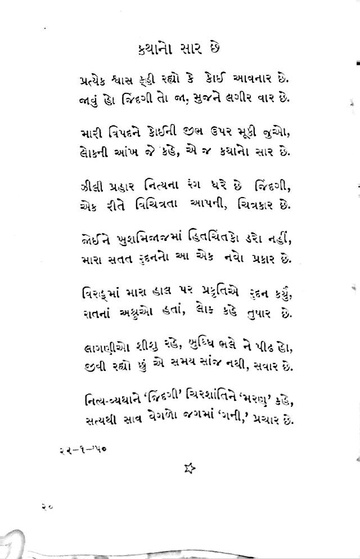 કથાનો સાર છે
પ્રત્યેક શ્વાસ કહી રહ્યો કે કોઈ આવનાર છે.
જાવું હો જિંદગી તો જા, મુજને લગીર વાર છે.
મારી વિપદને કોઈની જીભ ઉપર મૂકી જુઓ,
લોકની આંખ જે કહે, એ જ કથાનો સાર છે.
ઝીલી પ્રહાર નિત્યના રંગ ધરે છે જિંદગી,
એક રીતે વિચિત્રતા આપની, ચિત્રકાર છે.
જોઈને ખુશમિજાજમાં હિતચિંતકો ડરો નહીં,
મારા સતત રૂદનનો આ એક નવો પ્રકાર છે.
વિરહમાં મારા હાલ પર પ્રકૃતિએ રૂદન કર્યું,
રાતનાં અશ્રુઓ હતાં, લોક કહે તુષાર છે.
લાગણીઓ શીશુ રહે, બુધ્ધિ ભલે ને પીઢ હો,
જીવી રહ્યો છું એ સમય સાંજ નથી, સવાર છે.
નિત્ય-વ્યથાને ‘જિંદગી’ ચિરશાંતિને ‘મરણ’ કહે,
સત્યથી સાવ વેગળો જગમાં ‘ગની,’ પ્રચાર છે.
૨૨-૧-’૫૦
૨૦